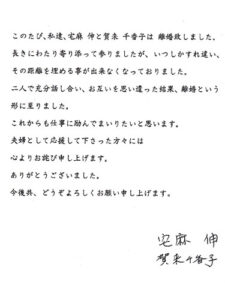 このたび、私達、宅麻 伸と賀来 千香子は 離婚致しました。
長きにわたり寄り添って参りましたが、いつしかすれ違い、
その距離を埋める事が出来なくなっておりました。
二人で充分話し合い、お互いを思い遣った結果、離婚という
形に至りました。
これからも仕事に励んでまいりたいと思います。
夫婦として応援して下さった方々には
心よりお詫び申し上げます。
ありがとうございました。
今後共、どうぞよろしくお願い申し上げます。
宅麻 伸
賀来千香子